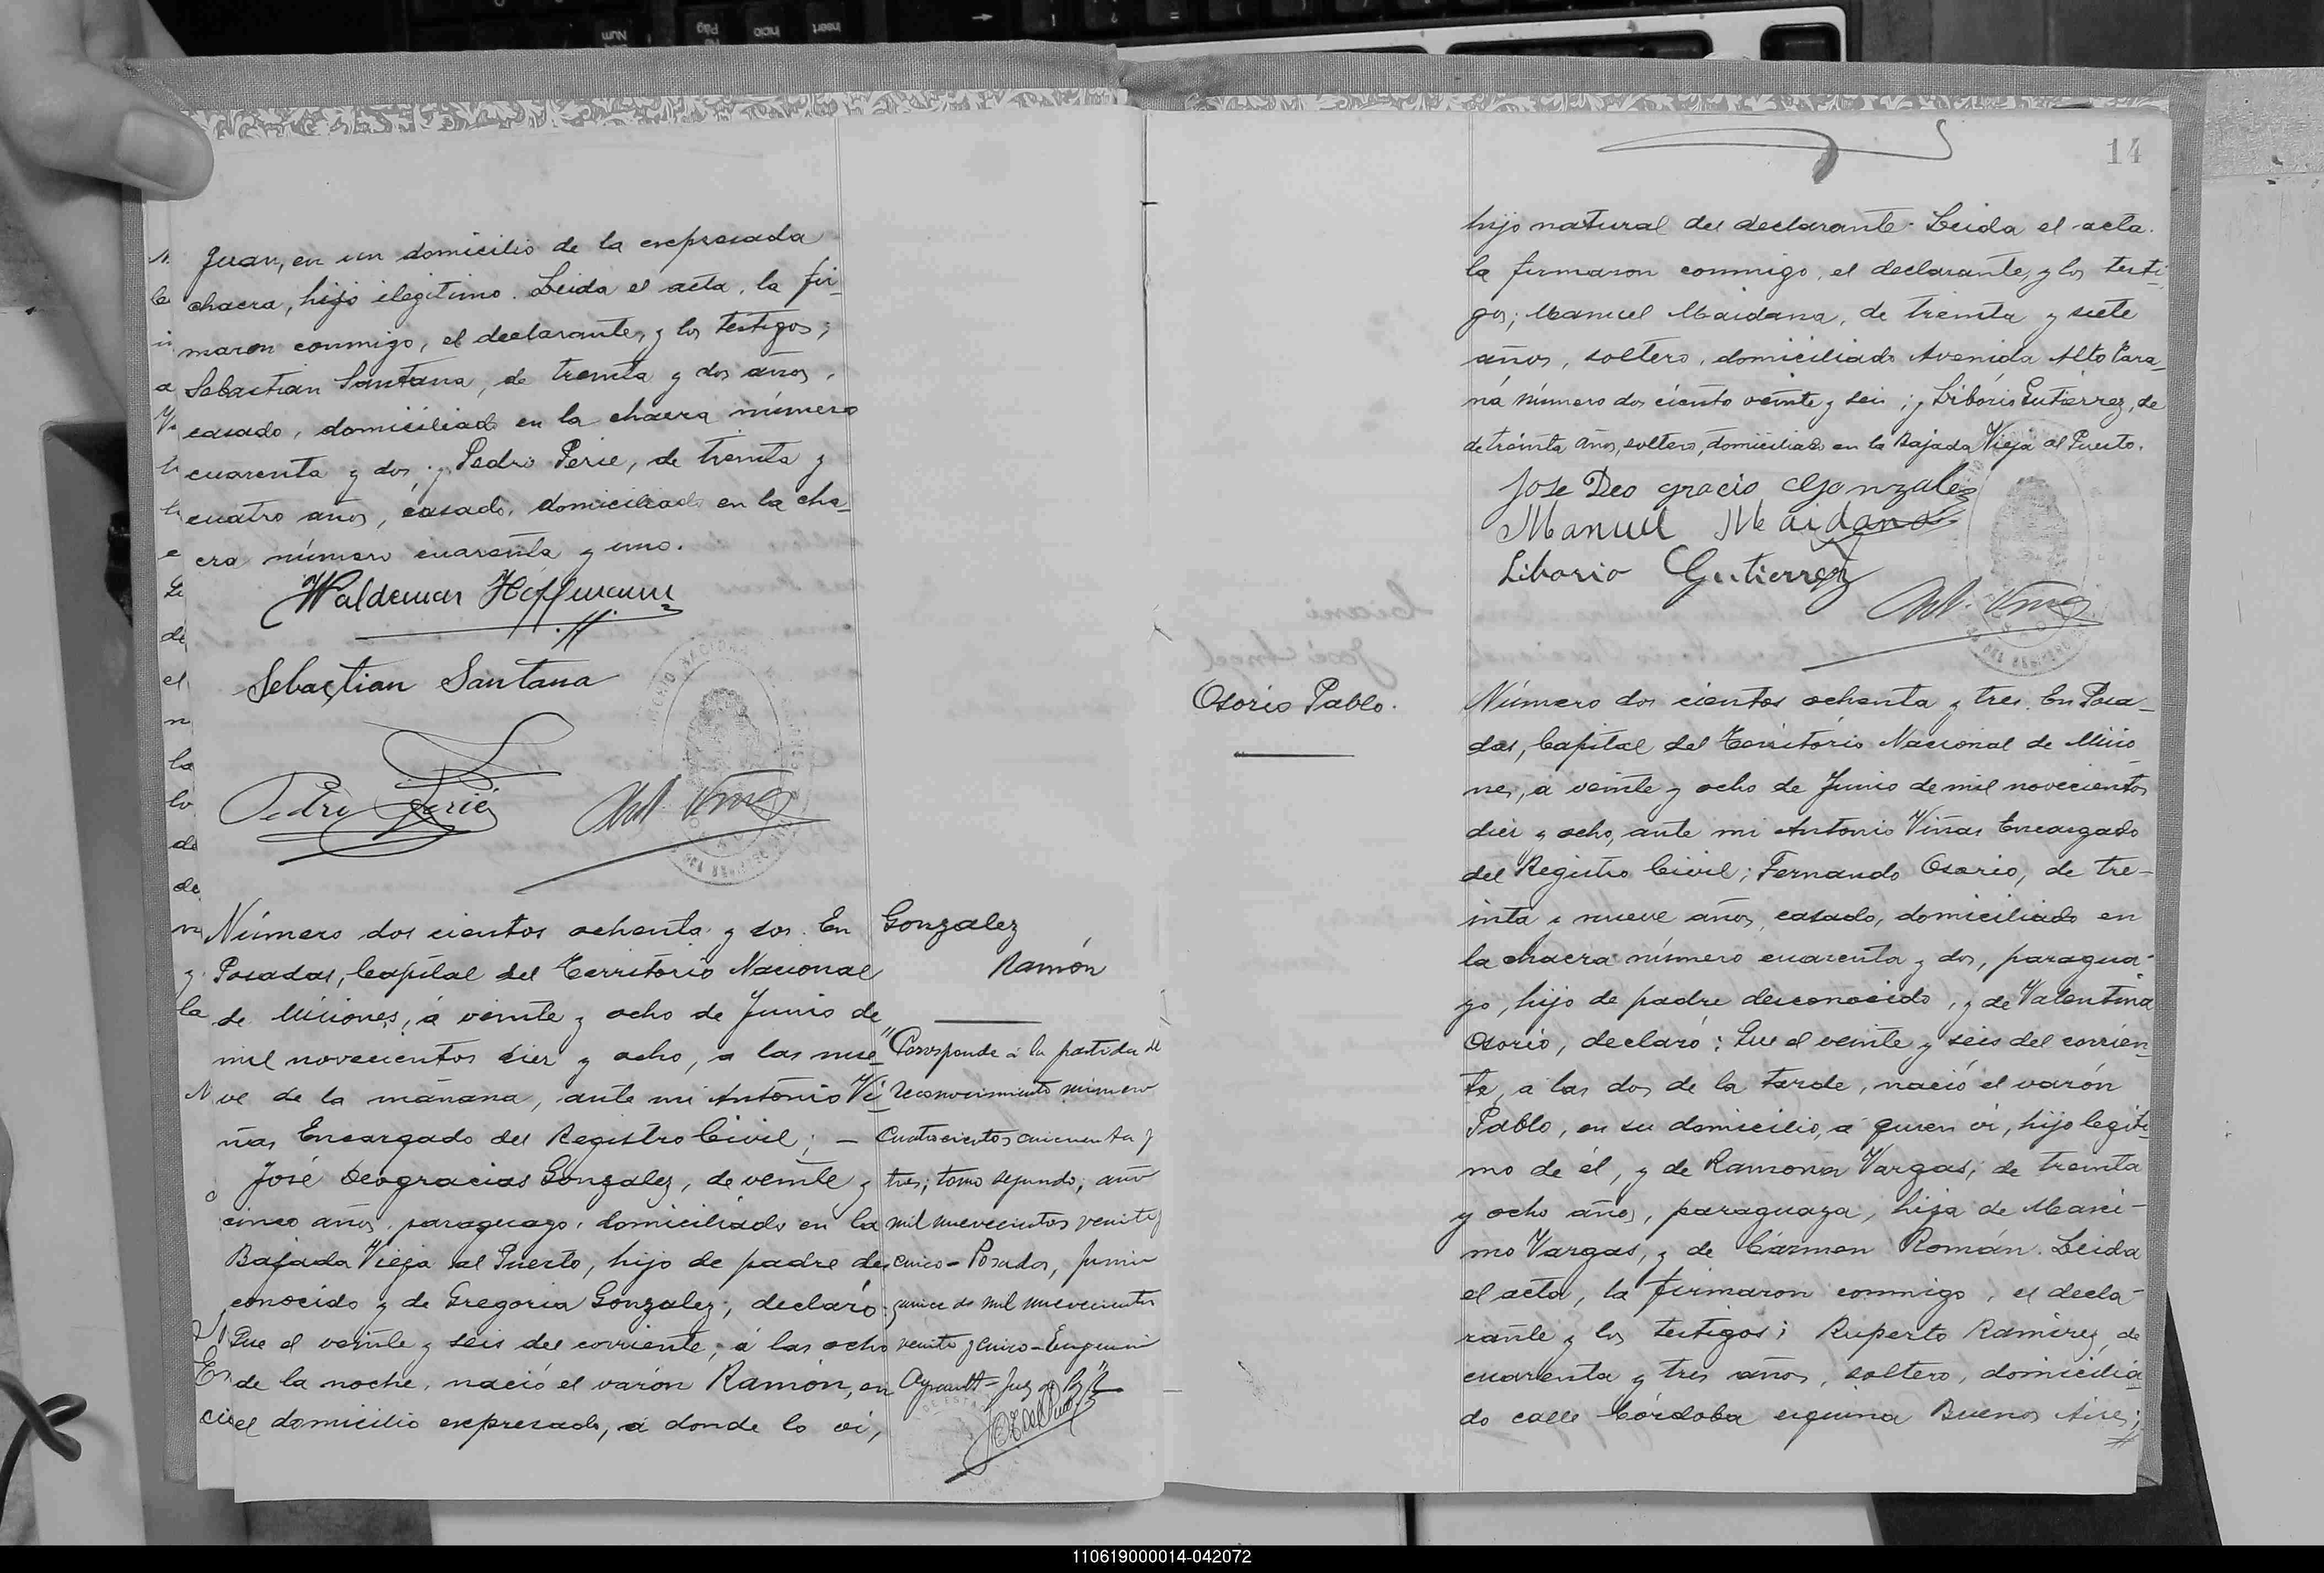 Juan, en un domicilio de la expresada
chacra, hijo ilegitimo. Leida el acta, la fir-
maron conmigo, el declarante, y los testigos;
Sebastian Santana, de treinta y dos años,
casado, domiciliado en la chacra número
cuarenta y dos; y Pedro Perie, de treinta y
cuatro años, casado, domiciliado en la cha-
cra número cuarenta y uno.
Waldemar Hoffmann
Sebastian Santana
Pedro Perié
Número dos cientos ochenta y dos. En
Posadas, Capital del Territorio Nacional
de Misiones, á veinte y ocho de Junio de
mil novecientos diez y ocho, a las nue-
ve de la mañana, ante mi Antonio Vi-
ñas Encargado del Registro Civil; —
José Deogracias Gonzalez, de veinte y
cinco años, paraguayo, domiciliado en la
Bajada Vieja al Puerto, hijo de padre des
conocido y de Gregoria Gonzalez; declaró:
Que el veinte y seis del corriente, á las ocho
de la noche, nació el varón Ramón, en
el domicilio expresado, a donde lo vi,
Gonzalez
Ramón
"Corresponde á la partida de
reconocimiento número
cuatrocientos cincuenta y
tres; tomo segundo, año
mil nuevecientos veinte y
cinco - Posadas, Junio
quince de mil nuevecientos
veinte y cinco - Eugenio
14
hijo natural del declarante. Leida el acta.
la firmaron conmigo, el declarante, y los testi-
gos; Manuel Maidana, de treinta y siete
años, soltero, domiciliado Avenida Alto Para-
ná número dos ciento veinte y seis; y Liborio Gutierrez, de
de treinta años, soltero, domiciliado en la Bajada Vieja al Puerto.
Jose Deo gracio Gonzalez
Manuel Maidana
Liborio Gutierrez
Osorio Pablo.
Número dos cientos ochenta y tres. En Posa-
das, Capital del Territorio Nacional de Misio-
nes, a veinte y ocho de Junio de mil novecientos
diez y ocho, ante mi Antonio Viñas Encargado
del Registro Civil; Fernando Osorio, de tre-
inta i nueve años, casado, domiciliado en
la chacra número cuarenta y dos, paragua-
yo, hijo de padre desconocido, y de Valentina
Osorio, declaró: Que el veinte y seis del corrien-
te, a las dos de la tarde, nació el varón
Pablo, en su domicilio, a quien vi, hijo legiti-
mo de él, y de Ramona Vargas; de treinta
y ocho años, paraguaya, hija de Maxi-
mo Vargas, y de Cármen Román. Leida
el acta, la firmaron conmigo, el decla-
rante y los testigos; Ruperto Ramirez, de
cuarenta y tres años, soltero, domicilia-
do calle Córdoba esquina Buenos Aires;
110619000014-042072